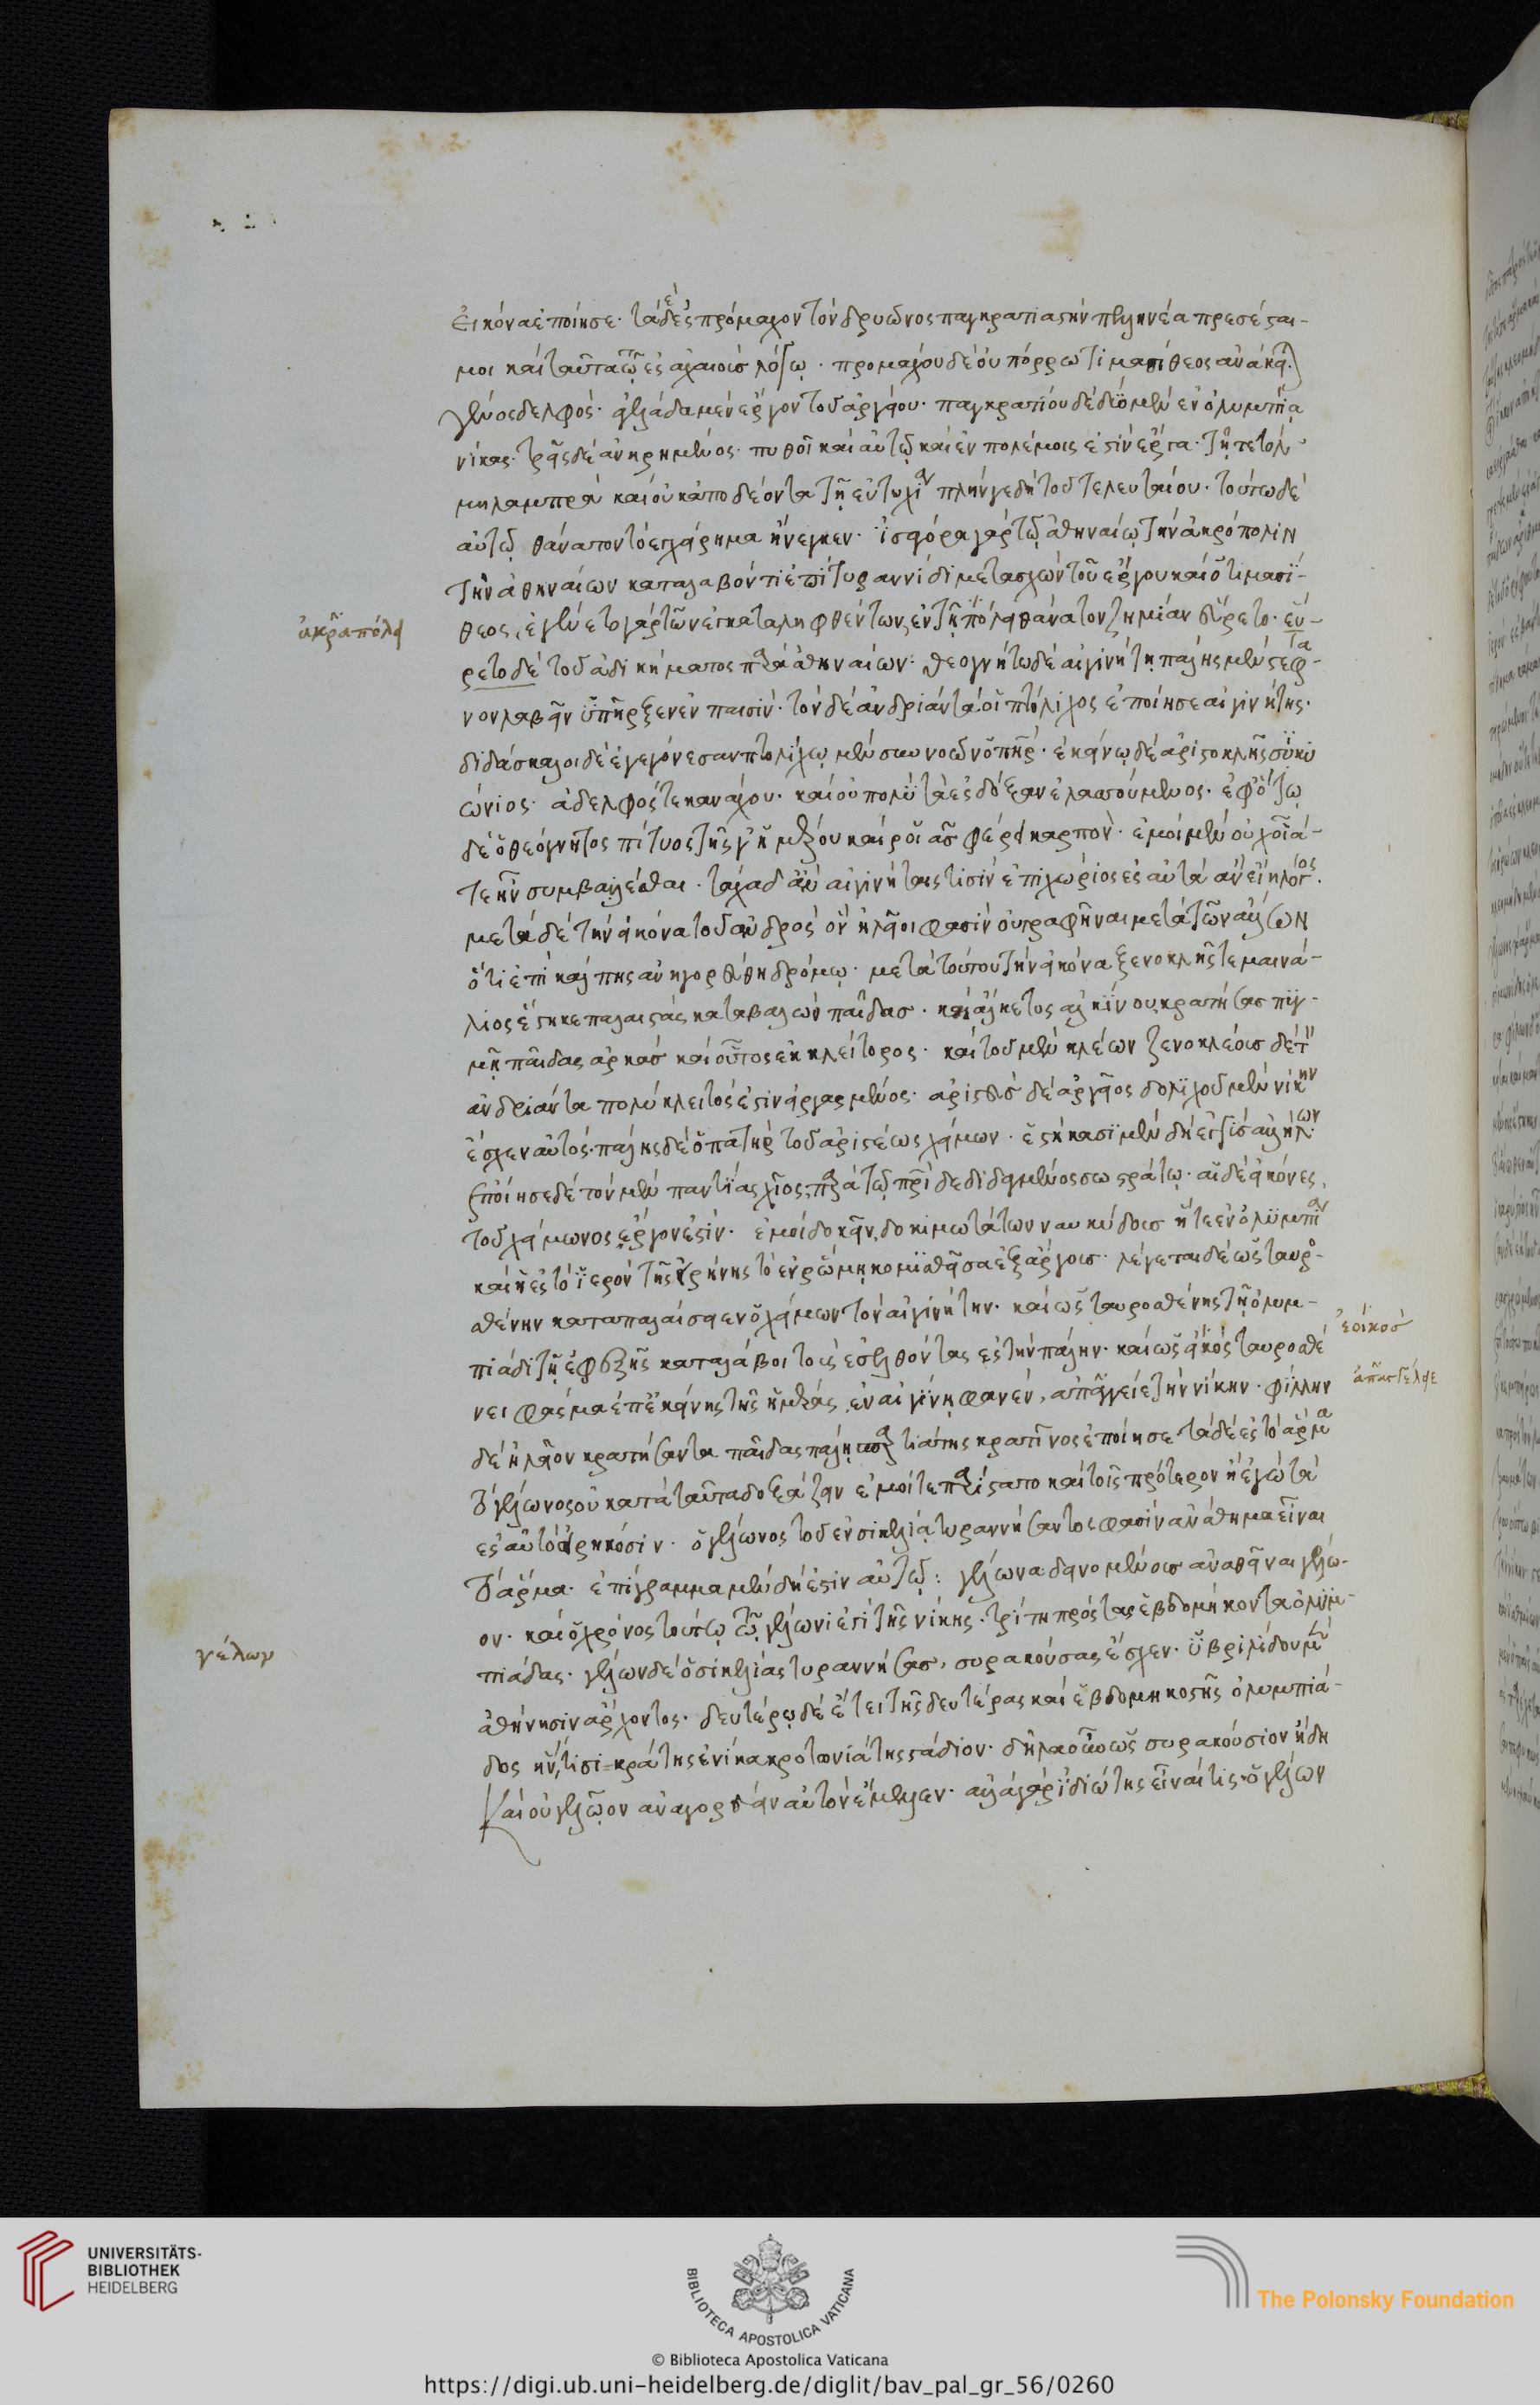 εἰκόνα ἐποίησε. τὰ δὲ ἐς πρόμαχον τὸν δρύωνος παγκρατιαστὴν πελληνέα προσέσται
μοι καὶ ταῦτα τῶ ἐς ἀχαιοὺς λόγῳ. προμάχου δὲ οὐ πόρρω τιμασίθεος ἀνάκει-
ται γένος δελφός. ἀγελάδα μὲν ἔργον τοῦ ἀργείου. παγκρατίου δὲ δύο μὲν ἐν ὀλυμπίᾳ
νίκας. τρεῖς δὲ ἀνηρημένος πυθοῖ καὶ αὐτῷ καὶ ἐν πολέμοις ἐστὶν ἔργα. τῇ τε τόλ-
μῃ λαμπρὰ καὶ οὐκ ἀποδέοντα τῇ εὐτυχίᾳ πλήν γε δὴ τοῦ τελευταίου. τοῦτο δὲ
αὐτῷ θάνατον τὸ ἐγχείρημα ἤνεγκεν. ἰσαγόρᾳ γὰρ τῷ ἀθηναίῳ τὴν ἀκρόπολιν
τὴν ἀθηναίων καταλαβόντι ἐπὶ τυραννίδι μετασχὼν τοῦ ἔργου καὶ ὁ τιμασί-
θεος, ἐγένετο γὰρ τῶν ἐγκαταληφθέντων, ἐν τῇ πόλει θάνατον ζημίαν εὕρετο. εὕ-
ρετο δὲ τοῦ ἀδικήματος παρὰ ἀθηναίων. θεογνήτῳ δὲ αἰγινήτῃ πάλης μὲν στέφα-
νον λαβεῖν ὑπῆρξεν ἐν παισίν. τὸν δὲ ἀνδριάντα οἱ πτόλιχος ἐποίησε αἰγινήτης.
διδάσκαλοι δὲ ἐγεγόνεσαν πτολίχῳ μὲν συννοῶν ὁ πατήρ. ἐκείνῳ δὲ ἀριστοκλῆς σικυ
ώνιος. ἀδελφός τε κανάχου. καὶ οὐ πολὺ τὰ ἐς δόξαν ἐλαττούμενος. ἐφ᾽ ὅτῳ
δὲ ὁ θεόγνητος πίτυος τῆς γε ἡμέρου καὶ ῥοιᾶς φέρει καρπὸν. ἐμοὶ μὲν οὐχ οἷά
τε ἦν συμβαλέσθαι. τάχα δ᾽ ἂν αἰγινήταις τισὶν ἐπιχώριος ἐς αὐτὰ ἂν εἴη λόγος.
μετὰ δὲ τὴν εἰκόνα τοῦ ἀνδρὸς ὃν ἠλεῖοι φασὶν οὐ γραφῆναι μετὰ τῶν ἄλλων
ὅτι ἐπὶ κάλπης ἀνηγορεύθη δρόμῳ. μετὰ τούτου τὴν εἰκόνα ξενοκλῆς τε μαινά-
λιος ἕστηκε παλαιστὰς καταβαλὼν παῖδας. καὶ ἄλκετος ἀλκίνου κρατήσας πυγ-
μῇ παῖδας ἀρκὰς καὶ οὗτος ἐκ κλείτορος. καὶ τοῦ μὲν κλέων ξενοκλέους δὲ τὸν
ἀνδριάντα πολύκλειτός ἐστιν εἰργασμένος. ἀριστεὺς δὲ ἀργεῖος δολίχου μὲν νίκην
ἔσχεν αὐτός. πάλης δὲ ὁ πατὴρ τοῦ ἀριστέως χείμων. ἑστήκασι μὲν δὴ ἐγγὺς ἀλλήλων
ἐποίησε δὲ τὸν μὲν παντίας χῖος, παρὰ τῷ πατρὶ δεδιδαγμένος σωστράτῳ. αἱ δὲ εἰκόνες
τοῦ χείμωνος ἔργον ἐστίν. ἐμοὶ δοκεῖν, δοκιμωτάτων ναυκύδους ἥ τε ἐν ὀλυμπίᾳ
καὶ ἡ ἐς τὸ ἱερὸν τῆς εἰρήνης τὸ ἐν ῥώμῃ κομισθεῖσα ἐξ ἄργους. λέγεται δὲ ὡς ταυρο-
σθένην καταπαλαίσειεν ὁ χείμων τὸν αἰγινήτην. καὶ ὡς ταυροσθένης τῇ ὀλυμ-
πιάδι τῇ ἐφεξῆς καταλάβοι τοὺς ἐσελθόντας ἐς τὴν πάλην. καὶ ὡς εἰκὸς ταυροσθέ
νει φάσμα ἐπ᾽ ἐκείνης τῆς ἡμέρας, ἐν αἰγίνῃ φανὲν, ἀπαγγείλε τὴν νίκην. φίλλην
δὲ ἠλεῖον κρατήσαντα παῖδας πάλῃ σπαρτιάτης κρατῖνος ἐποίησε. τὰ δὲ ἐς τὸ ἅρμα
τὸ γέλωνος οὐ κατὰ ταῦτα δοξάζειν ἐμοί τε παρίστατο καὶ τοῖς πρότερον ἢ ἐγὼ τὰ
ἐς αὐτὸ εἰρηκόσιν. ὃ γέλωνος τοῦ ἐν σικελίᾳ τυραννήσαντος φασὶν ἀνάθημα εἶναι
τὸ ἅρμα. ἐπίγραμμα μὲν δή ἐστιν αὐτῷ: γέλωνα δεινομένους ἀναθεῖναι γελώ-
ον. καὶ ὁ χρόνος τούτῳ τῷ γέλωνι ἐστὶ τῆς νίκης. τρίτη πρὸς τὰς ἑβδομήκοντα ὀλυμ-
πιάδας. γέλων δὲ ὁ σικελίας τυραννήσας, συρακούσας ἔσχεν. ὑβριλίδου μὲν
ἀθήνησιν ἄρχοντος. δευτέρῳ δὲ ἔτει τῆς δευτέρας καὶ ἑβδομηκοστῆς ὀλυμπιά-
δος ἣν, τισικράτης ἐνίκα κροτωνιάτης στάδιον. δῆλα οὖν ὡς συρακούσιον ἤδη
καὶ οὐ γελῷον ἀναγορεύειν αὑτὸν ἔμελλεν. ἀλλὰ γὰρ ἰδιώτης εἶναί τις ὁ γέλων
ἀκροπόλει
ἐοικὸς
ἀπαγγέλλει
γέλων
UNIVERSITÄTS-
BIBLIOTHEK
HEIDELBERG
BIBLIOTECA APOSTOLICA VATICANA
The Polonsky Foundation
© Biblioteca Apostolica Vaticana
https://digi.ub.uni-heidelberg.de/diglit/bav_pal_gr_56/0260